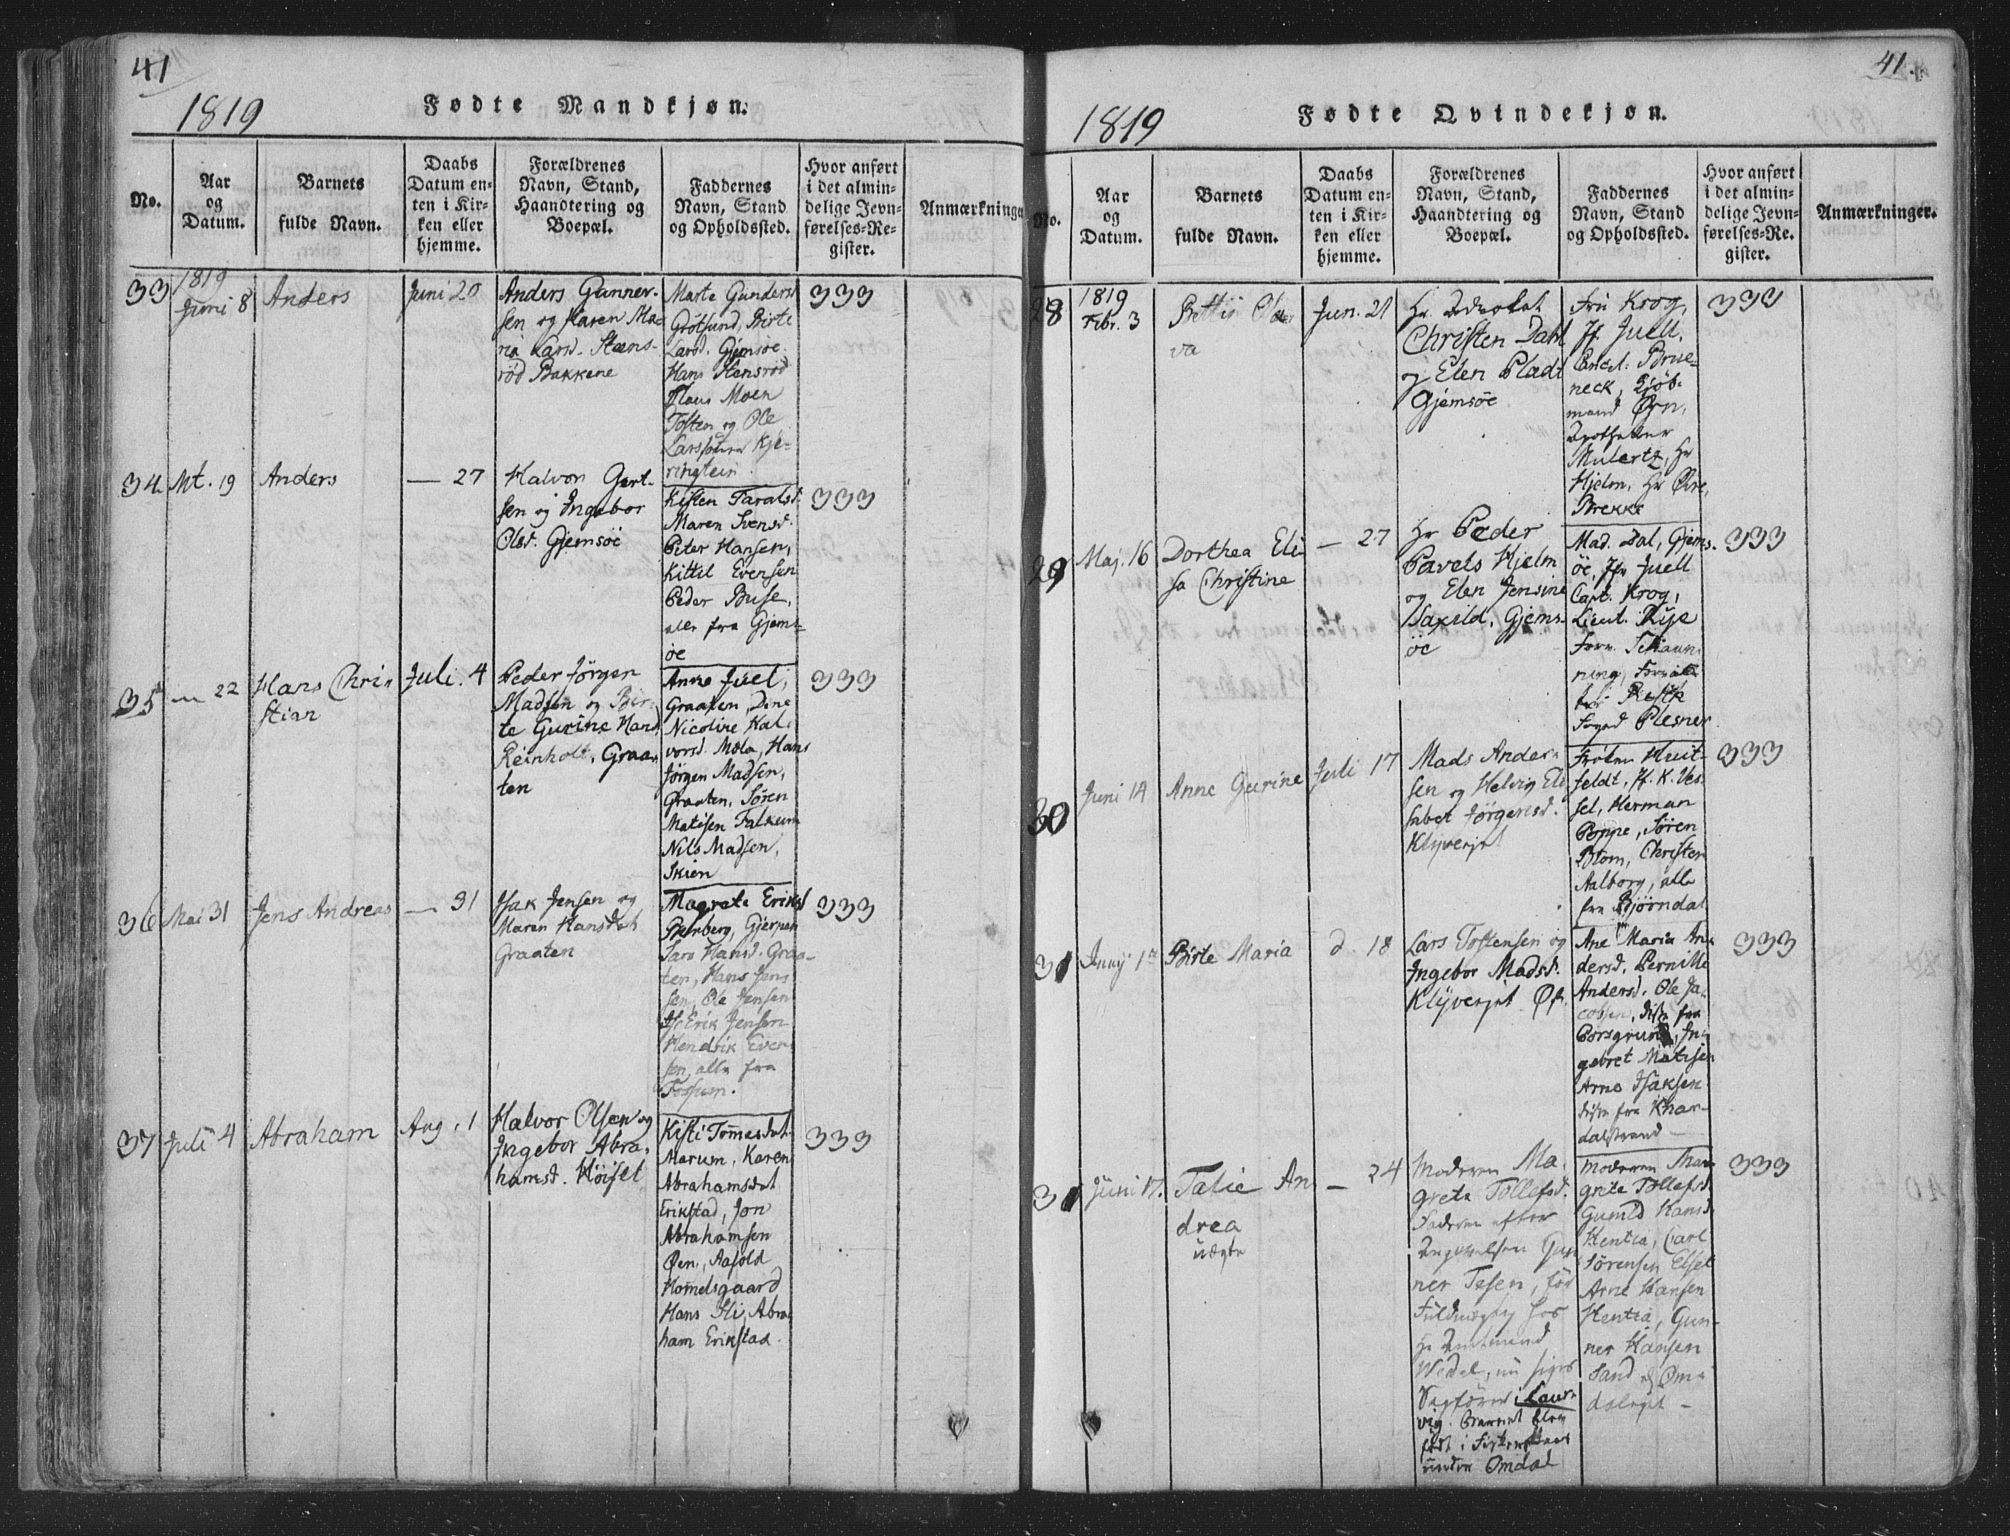 41
1819
Fødte Mandkjøn.
No.
Aar
og
Datum.
Barnets
fulde Navn.
Daabs
Datum en-
ten i Kir-
ken eller
hjemme.
Forældrenes
Navn, Stand,
Haandtering og
Boepæl.
Faddernes
Navn, Stand
og Opholdssted.
Hvor anført
i det almin-
delige Jevn-
førelses-Re-
gister.
Anmærkninger
33
1819
Juni 8
Anders
Juni 20
Anders Gunner-
sen og Karen Ma-
ria Larsd. Stens-
rød Bakkene
Marte Gundersd
Grötsund, Birte
Larsd. Gjemsøe
Hans Stensrød
Claus Moen
Tosten og Ole
Larssønner Kje-
ringtein.
333
34
Mt. 19
Anders
— 27
Halvor Gert-
sen og Ingebor
Olsd. Gjemsöe
Kisten Taralsd.
Maren Svensd.
Peter Hansen,
Kittil Evensen
Peder Buse,
alle fra Gjems-
öe
333
35
— 22
Hans Chri-
stian
Juli. 4
Peder Jörgen
Madsen og Bir-
te Gurine Hansd
Reinholt, Graa-
ten
Anne Juel,
Graaten, Dine
Nicoline Hal-
vorsd. Mæla, Hans
Jørgen Madsen,
Graaten, Søren
Matisen Falkum
Nils Madsen,
Skien
333
36
Mai 31
Jens Andreas
— 31
Isak Jensen og
Maren Hansdat
Graaten
Magrete Eriksd
Bierberg, Gjerpen
Sara Hansd. Graa-
ten, Hans Jens
sen, Ole Jensen
Erik Jensen
Hendrik Even
sen, alle fra
Fossum.
333
37
Juli 4
Abraham
Aug. 1
Halvor Olsen og
Ingebor Abra-
hamsd. Høiset
Kisti Tomesdat
Marum, Karen
Abrahamsdat
Erikstad, Jon
Abrahamsen
Øen, Aasold
Hommelsgaard
Hans Sli, Abra
ham Erikstad.
333
41.
1819
Fødte Qvindekjøn.
No.
Aar
og
Datum.
Barnets
fulde Navn.
Daabs
Datum en-
ten i Kir-
ken eller
hjemme.
Forældrenes
Navn, Stand,
Haandtering og
Boepæl.
Faddernes
Navn, Stand
og Opholdssted.
Hvor anført
i det almin-
delige Jevn-
førelses-Re-
gister.
Anmærkninger.
28
1819
Febr. 3
Jun. 21
Hr Advokat
Christen Dahl
og Elen Pladt
Gjemsöe
Fru Krog,
Jf. Juell,
Cancel: Brue-
neck, Kjöb-
mand Ørn,
Apotheker
Mulertz, Hr
Hjelm, Hr Øvre,
Brekke
333
29
Maj. 16
Dorthea Eli
sa Christine
— 27
Hr Peder
Pavels Hjelm
og Elen Jensine
Saxild, Gjems-
öe
Mad. Dal, Gjems-
öe, Jfr Juell
Capt. Krog,
Lieut. Rye
Foged Plesner
333
30
Juni 14
Anne Gurine
Juli 17
Mads Ander-
sen og Helvig Eli
sabet Jörgensd.
Klyverjet
Frøken Huit-
feldt, Jf. K. Ves-
sel, Herman
Poppe, Søren
Blom, Christen
Aalborg, alle
fra Bjørndal
333
31
Birte Maria
d. 18
Lars Tostensen og
Ingebor Madsd.
Klyverjet
Ane Maria An-
dersd. Pernille
Andersd. Ole Ja-
cobsen, disse fra
Porsgrund, In-
gebret Matisen
Arne Isaksen
disse fra Knar-
dalstrand —
333
31
Juni 17.
Talie An
drea
uægte
— 24
Moderen Ma-
grete Tollefsd.
Faderen efter
Angivelsen Gun
ner Tesen, før
Fuldmægtig hos
Hr Amtmand
Wedel, nu siges
Sagfører i Laur-
vig. Barnet blev
født i
under Omdal
Moderen Mar-
grete Tollefsd
Gunild Hansd
Hentia, Carl
Sørensen Elset
Arne Hansen
Hentia, Gun-
ner Hansen
Sand og Om-
dalejet —
333